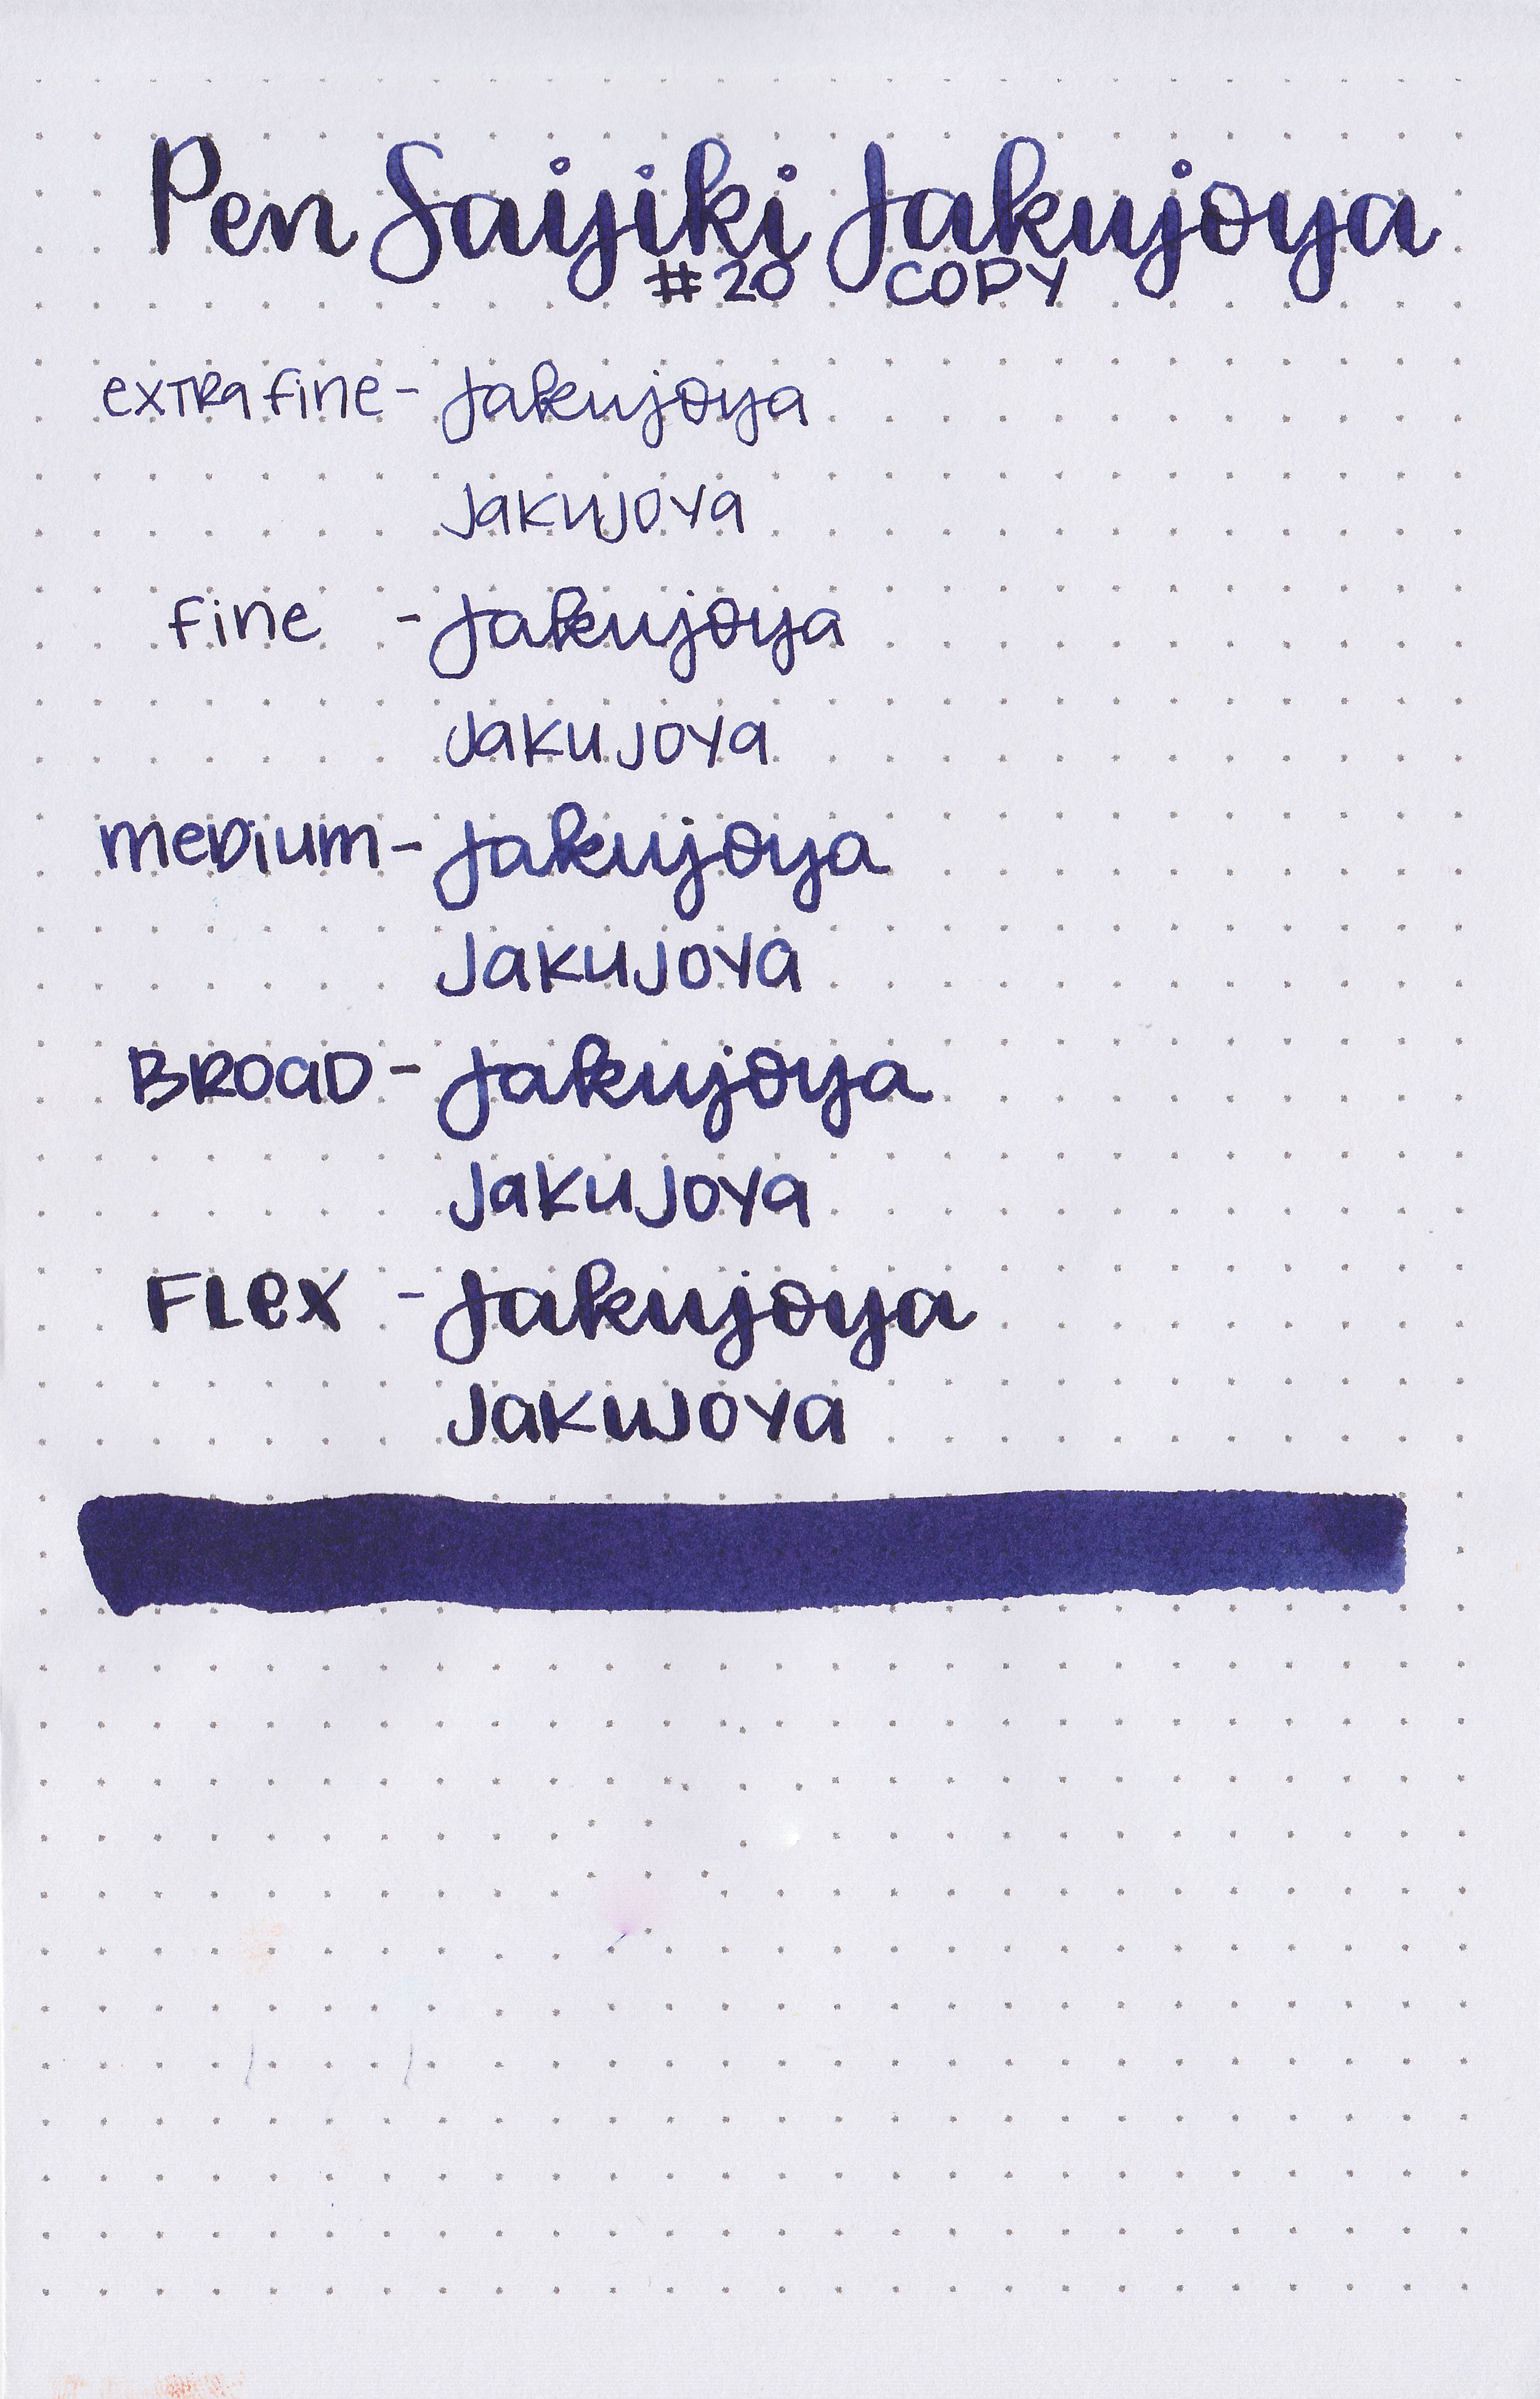 Pen Saiyiki Jakujoya
#20 COPY
extra fine - Jakujoya
Jakujoya
fine - Jakujoya
Jakujoya
medium - Jakujoya
Jakujoya
Broad - Jakujoya
Jakujoya
Flex - Jakujoya
Jakujoya